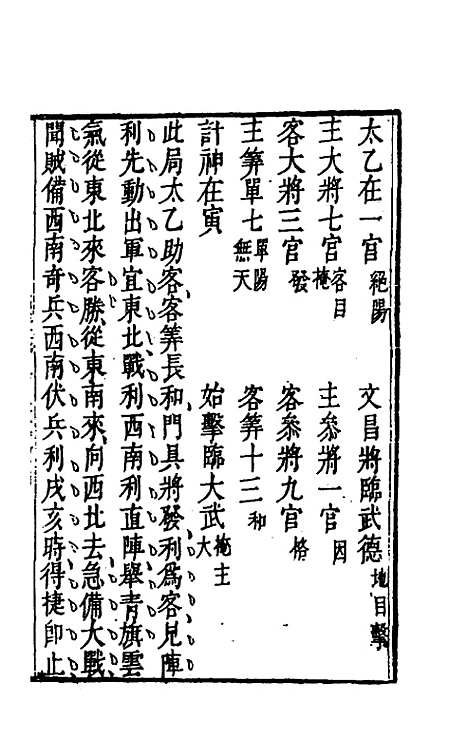 太乙在一宫絕陽　文昌將臨武德地目擊
主大將七宫客目掩　主叅將一宫因
客大將三宫發　客叅將九宫格
主筭單七單陽無天　客筭十三和
計神在寅　始擊臨大武掩主大
此局太乙助客客筭長和門具將發利爲客見陣
利先動出軍宜東北戰利西南利直陣舉青旗雲
氣從東北來客勝從東南來向西北去急備大戰
聞賊備西南奇兵西南伏兵利戌亥時得捷卽止